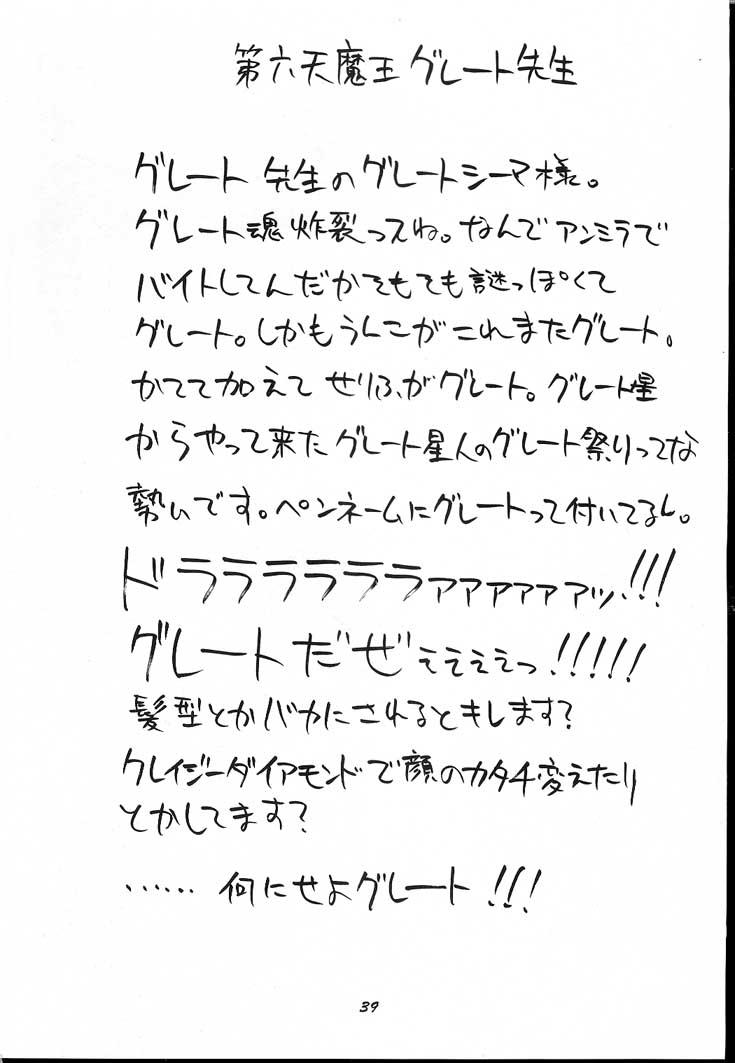 第六天魔王グレート先生
グレート 先生のグレートシーマ様。
グレート魂炸裂っスね。なんでアンミラで
バイトしてんだかとてもても謎っぽくて
グレート。しかもうんこがこれまたグレート。
かてて加えて せりふがグレート。グレート星
からやって来たグレート星人のグレート祭りってな
勢いです。ペンネームにグレートって付いてるし。
ドララララララァァァァァァッ!!!
グレートだぜぇぇぇぇっ!!!!!
髪型とかバカにされるとキレます?
クレイジーダイアモンドで顔のカタチ変えたり
とかしてます?
……何にせよグレート!!!
39